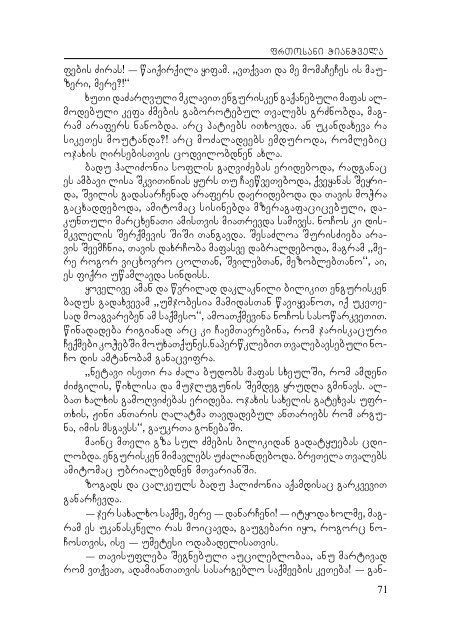 ფრთოსანი ჭიანჭველა
ფების ძირას! — წაიქირქილა ყიფამ. „ვთქვათ და მე მომაჩეჩეს ის მაუ-
ზერი, მერე?!“
ხუთი დაძარღვული მკლავით ენგურისკენ გაქანებული მაფას ალ-
მოდებული კეფა ძმების გაბოროტებულ თვალებს გრძნობდა, მაგ-
რამ არაფერს ნანობდა. არც პატიებს ითხოვდა. ან უკანდახევა რა
სიკეთეს მოუტანდა?! არც მოძალადეებს ემდუროდა, რომლებიც
ოჯახის ღირსებისთვის ცოდვილობდნენ ახლა.
ბადუ ჰალიძონია სოფლის გაღვიძებას ერიდებოდა, რადგანაც
ეს ამბავი ლისა შკვითინიას ყურს თუ ჩაეწვეთებოდა, ქვეყანას შეყრი-
და, შვილის გადასარჩენად არაფერს დაერიდებოდა და თავის მოჭრა
გაცხადდებოდა, ამიტომაც სისინებდა მზერაგაფაციცებული, და-
კუნთული მარცხენათი ამისთვის მიათრევდა სამივეს. ნოჩოს კი დის-
მკვლელის შერქმევის შიში თანგავდა. შესაძლოა შურისძიება არა-
ვის შეემჩნია, თავის დახრჩობა მაფასვე დაბრალდებოდა, მაგრამ „მე-
რე როგორ ვიცხოვრო ცოლთან, შვილებთან, მეზობლებთანო“, აი,
ეს ფიქრი უწამლავდა სინდისს.
ყოველივე ამან და წვრილად დაკლაკნილი ბილიკით ენგურისკენ
ბადუს გადახვევამ „უმჯობესია მამიდასთან წავიყვანოთ, იქ უკეთე-
სად მოაგვარებენ ამ საქმესო“, ამოათქმევინა ნოჩოს სასოწარკვეთით.
წინადადება რიგიანად არც კი ჩაემთავრებინა, რომ ჯარისკაცური
ჩექმები კოჭებში მოუხათქუნეს.ნაპერწკლებით თვალებავსებული ნო-
ჩო დის ამტანობამ განაცვიფრა.
„ნეტავი ისეთი რა ძალა ბუდობს მაფას სხეულში, რომ ამდენი
ძიძგილის, წიხლისა და მუჯლუგუნის შემდეგ ყრუდღა გმინავს. ალ-
ბათ ხალხის გამოღვიძებას ერიდება. ოჯახის სახელის გატეხვას უფრ-
თხის, ჟინი ანთარის ღალატმა თავდადებულ ანთარიებს რომ არგუ-
ნა, იმის მსგავსს“, გაუკრთა გონებაში.
მაინც მთელი გზა სულ ძმების ბილიკიდან გადატყუებას ცდი-
ლობდა. ენგურისკენ მიმავლებს უძალიანდებოდა. ბრეთელა თვალებს
ამიტომაც უბრიალებდნენ მთვარიანში.
ზოგადს და ცალკეულს ბადუ ჰალიძონია აქამდისაც გარკვევით
განარჩევდა.
— ჯერ სახალხო საქმე, მერე — დანარჩენი! — იტყოდა ხოლმე, მაგ-
რამ ეს უკანასკნელი რას მოიცავდა, გაუგებარი იყო, როგორც ნო-
ჩოსთვის, ისე — უმეტესი ოდაბადელისათვის.
— თავისუფლება შეგნებული აუცილებლობაა, ანუ მარტივად
რომ ვთქვათ, ადამიანთათვის სასარგებლო საქმეების კეთება! — გან-
71